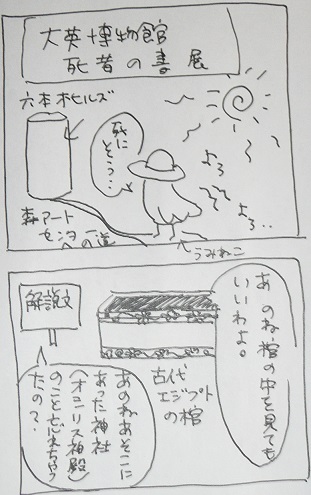 大英博物館
死者の書 展
六本木ヒルズ
死に
そう…
よろ
よろ..
森アート
センター
への道
うみねこ
あのね、棺の中を見ても
いいわよ。
解説文
古代
エジプト
の棺
あのねあそこに
あった神社
(オシリス神殿)
のこと忘れちゃっ
たの?